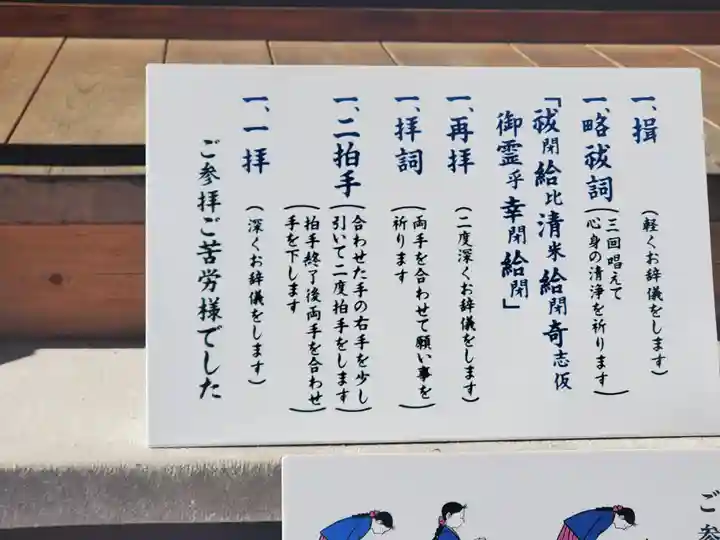 一、揖(軽くお辞儀をします)
一、略祓詞(三回唱えて
心身の清浄を祈ります)
「祓閇給比清米給閇奇志仮
御霊乎幸閇給閇」
一、再拝(二度深くお辞儀をします)
一、拝詞(両手を合わせて願い事を
祈ります)
一、二拍手(合わせた手の右手を少し
引いて二度拍手をします)
(拍手終了後両手を合わせ
手を下します)
一、一拝(深くお辞儀をします)
ご参拝ご苦労様でした
ご参